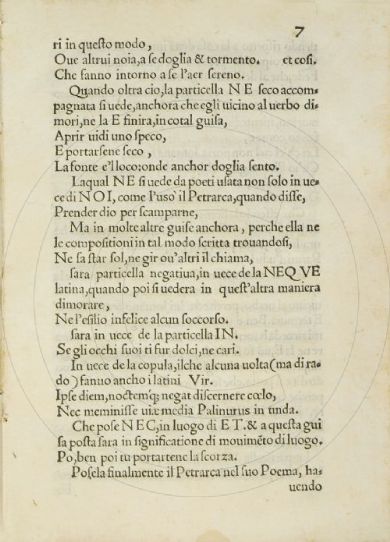 7
ri in questo modo,
Oue altrui noia, a se doglia & tormento. et cosi.
Che fanno intorno a se l'aer sereno.
Quando oltra cio, la particella NE seco accom-
pagnata si uede, anchora che egli uicino al uerbo di-
mori, ne la E finira, in cotal guisa,
Aprir uidi uno speco,
E portarsene seco,
La fonte e'l loco: onde anchor doglia sento.
Laqual NE si uede da poeti usata non solo in ue-
ce di NOI, come l'uso il Petrarca, quando disse,
Prender dio per scamparne,
Ma in molte altre guise anchora, perche ella ne
le compositioni in tal modo scritta trouandosi,
Ne sa star sol, ne gir ou'altri il chiama,
sara particella negatiua, in uece de la NEQVE
latina, quando poi si uedera in quest'altra maniera
dimorare,
Ne l'esilio infelice alcun soccorso.
sara in uece de la particella IN.
Se gli occhi suoi ti fur dolci, ne cari.
In uece de la copula, ilche alcuna uolta (ma di ra-
do) fanno anchoi latini Vir.
Ipse diem, noctemq; negat discernere cœlo,
Nec meminisse uiæ media Palinurus in unda.
Che pose NEC, in luogo di ET. & a questa gui
sa posta sara in significatione di mouimẽto di luogo.
Po, ben poi tu portartene la scorza.
Posela finalmente il Petrarca nel suo Poema, ha-
uendo